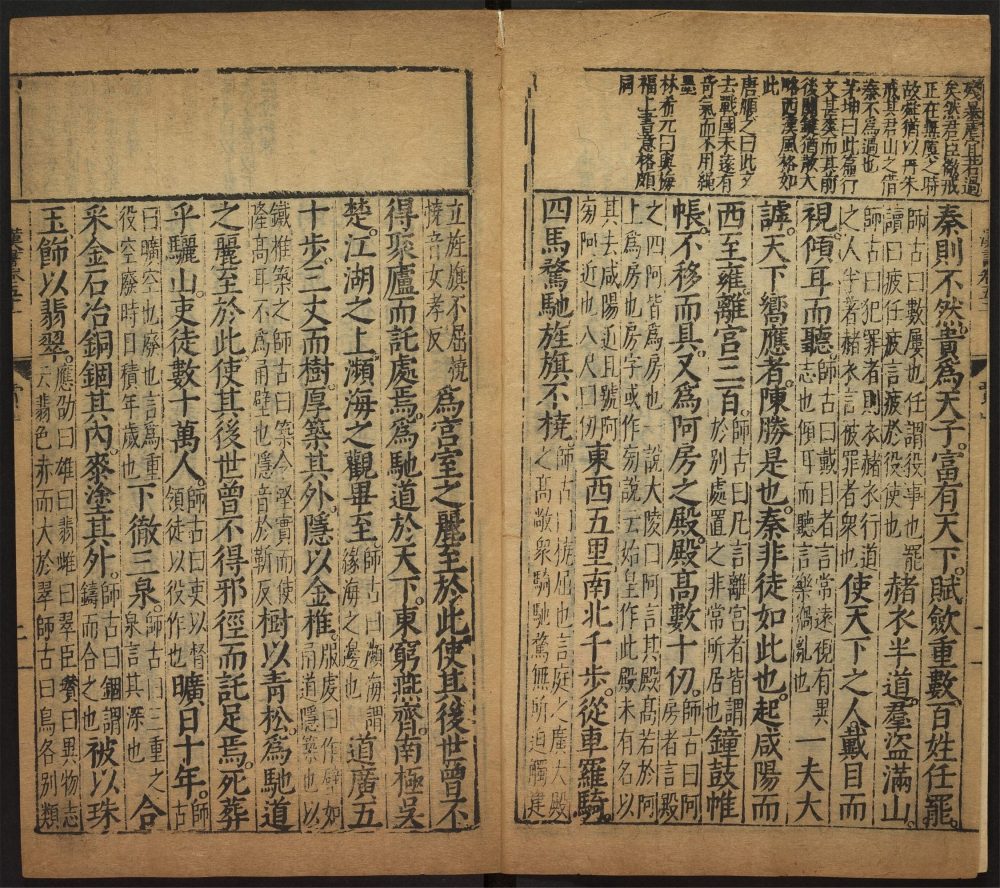 矣然君臣儆戒
正在無虞之時
故舜猶以丹朱
戒其君山之借
秦不為過也
茅坤曰此篇行
文甚爽而其前
後關鍵猶散大
略西漢風格如
此
唐順之曰此文
去戰國未遠有
奇氣而不用繩
墨
林希元曰與梅
福上書意格頗
同
秦則不然貴為天子。富有天下。賦斂重數。百姓任罷。
師古曰數屢也任謂役事也罷讀曰疲任疲言疲於役使也赭衣半道。羣盜滿山。
師古曰犯罪者則衣赭衣行道之人半著赭衣言被罪者衆也使天下之人戴目而
視。傾耳而聽。師古曰戴目者言常遠視有異志也傾耳而聽言樂禍亂也一夫大
謼。天下嚮應者。陳勝是也。秦非徒如此也。起咸陽而
西至雍。離宮三百。師古曰凡言離宮者皆謂於別處置之非常所居也鐘鼓帷
帳。不移而具。又為阿房之殿。殿高數十仞。師古曰阿房者言殿
之四阿皆為房也一說大陵曰阿言其殿高若於阿上為房也房字或作旁說云始皇作此殿未有名以
其去咸陽近且號阿旁阿近也八尺曰仞東西五里。南北千步。從車羅騎。
四馬騖馳旌旗不橈師古曰橈屈也言庭之廣大殿之高敞衆騎馳騖無所迫觸建
立旌旗不屈橈橈音女孝反為宮室之麗至於此。使其後世曾不
得聚廬而託處焉。為馳道於天下。東窮燕齊。南極吳
楚。江湖之上。瀕海之觀畢至師古曰瀕海謂緣海之邊也道廣五
十步。三丈而樹。厚築其外。隱以金椎。服虔曰作壁如甬道隱築也以
鐵椎築之師古曰築令堅實而使隆高耳不為甬壁也隱音於靳反樹以青松。為馳道
之麗至於此使其後世曾不得邪徑而託足焉。死葬
乎驪山。吏徒數十萬人。師古曰吏以督領徒以役作也曠日十年。師古
曰曠空也廢也言為重役空廢時日積年歲也下徹三泉。師古曰三重之泉言其深也合
采金石冶銅錮其內。桼塗其外。師古曰錮謂鑄而合之也被以珠
玉飾以翡翠。應劭曰雄曰翡雌曰翠臣瓚曰異物志云翡色赤而大於翠師古曰鳥各別類